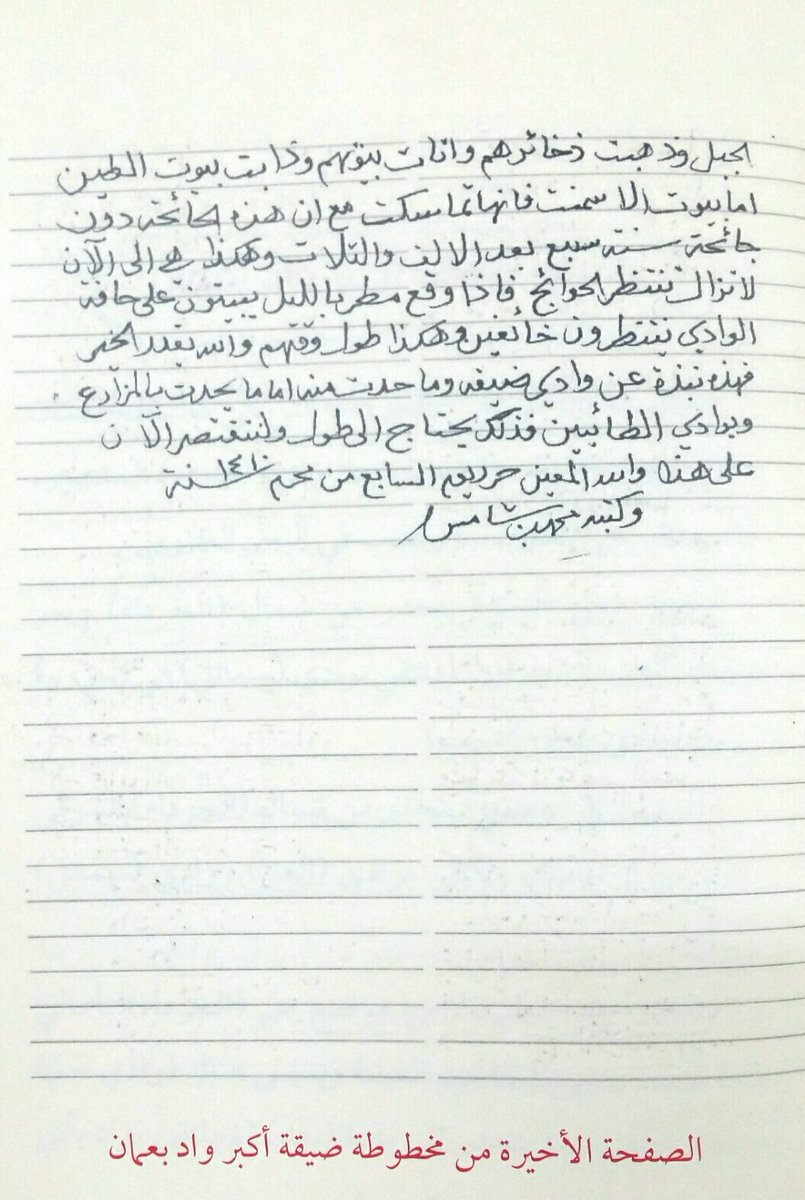 الجبل وذهبت ذخائرهم واثاث بيوتهم وذابت بيوت الطين
اما بيوت الاسمنت فانها تماسكت مع ان هذه الجائحة دون
جائحة سنة سبع بعد الالف والثلاث وهكذا هي الى الآن
لا تزال تنتظر الجوائح فاذا وقع مطر بالليل يبيتون على حافة
الوادي ينتظرون خائفين وهكذا طول وقتهم والله يقدر الخير
فهذه نبذة عن وادي ضيقه وما حدث منه اما ما يحدث بالمزارع
وبوادي الطائيين فذلك يحتاج الى طول ولنقتصر الآن
على هذا والله المعين حرر يوم السابع من محرم سنة ١٤١٠
وكتبه محمد بن شامس
الصفحة الأخيرة من مخطوطة ضيقة أكبر واد بعمان